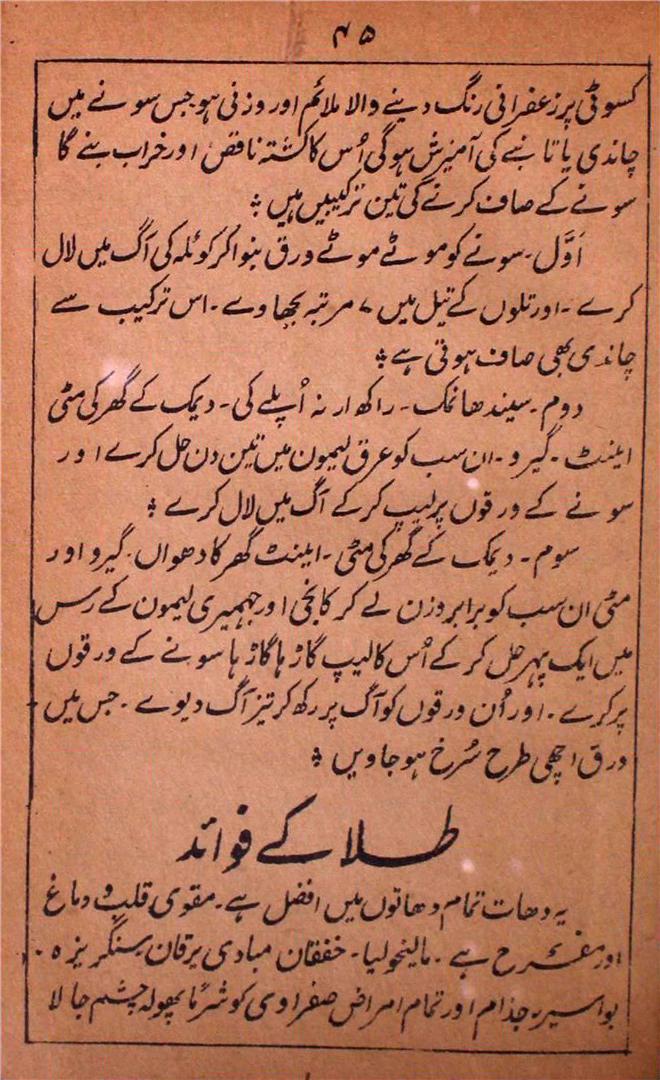 ۴۵
کسوٹی پر زعفرانی رنگ دینے والا ملائم اور وزنی ہو جس سونے میں
چاندی یا تانبے کی آمیزش ہوگی اُس کا کشتہ ناقص اور خراب بنے گا
سونے کے صاف کرنے کی تین ترکیبیں ہیں ؞
اَوَّل ۔ سونے کو موٹے موٹے ورق بنوا کر کوئلہ کی آگ میں لال
کرے ۔ اور تلوں کے تیل میں ۷ مرتبہ بجھاوے ۔ اس ترکیب سے
چاندی بھی صاف ہوتی ہے ؞
دوم ۔ سیندھا نمک ۔ راکھ ارنہ اُپلے کی ۔ دیمک کے گھر کی مٹی
اینٹ ۔ گیرو ۔ ان سب کو عرق لیموں میں تین دن حل کرے اور
سونے کے ورقوں پر لیپ کر کے آگ میں لال کرے ؞
سوم ۔ دیمک کے گھر کی مٹی ۔ اینٹ گھر کا دھواں ۔ گیرو اور
مٹی ان سب کو برابر وزن لے کر کانجی اور جہمیری لیموں کے رس
میں ایک پہر حل کر کے اُس کا لیپ گاڑہا گاڑہا سونے کے ورقوں
پر کرے ۔ اور اُن ورقوں کو آگ پر رکھ کر تیز آگ دیوے ۔ جس میں
ورق اچھی طرح سُرخ ہو جاویں ؞
طلا کے فوائد
یہ دھات تمام دھاتوں میں افضل ہے ۔ مقوی قلب و دماغ
اور مفرح ہے ۔ مالیخولیا ۔ خفقان مبادی یرقان سنگریزہ ۔
بواسیر ۔ جذام اور تمام امراض صفراوی کو شرباً پھولہ چشم جالا